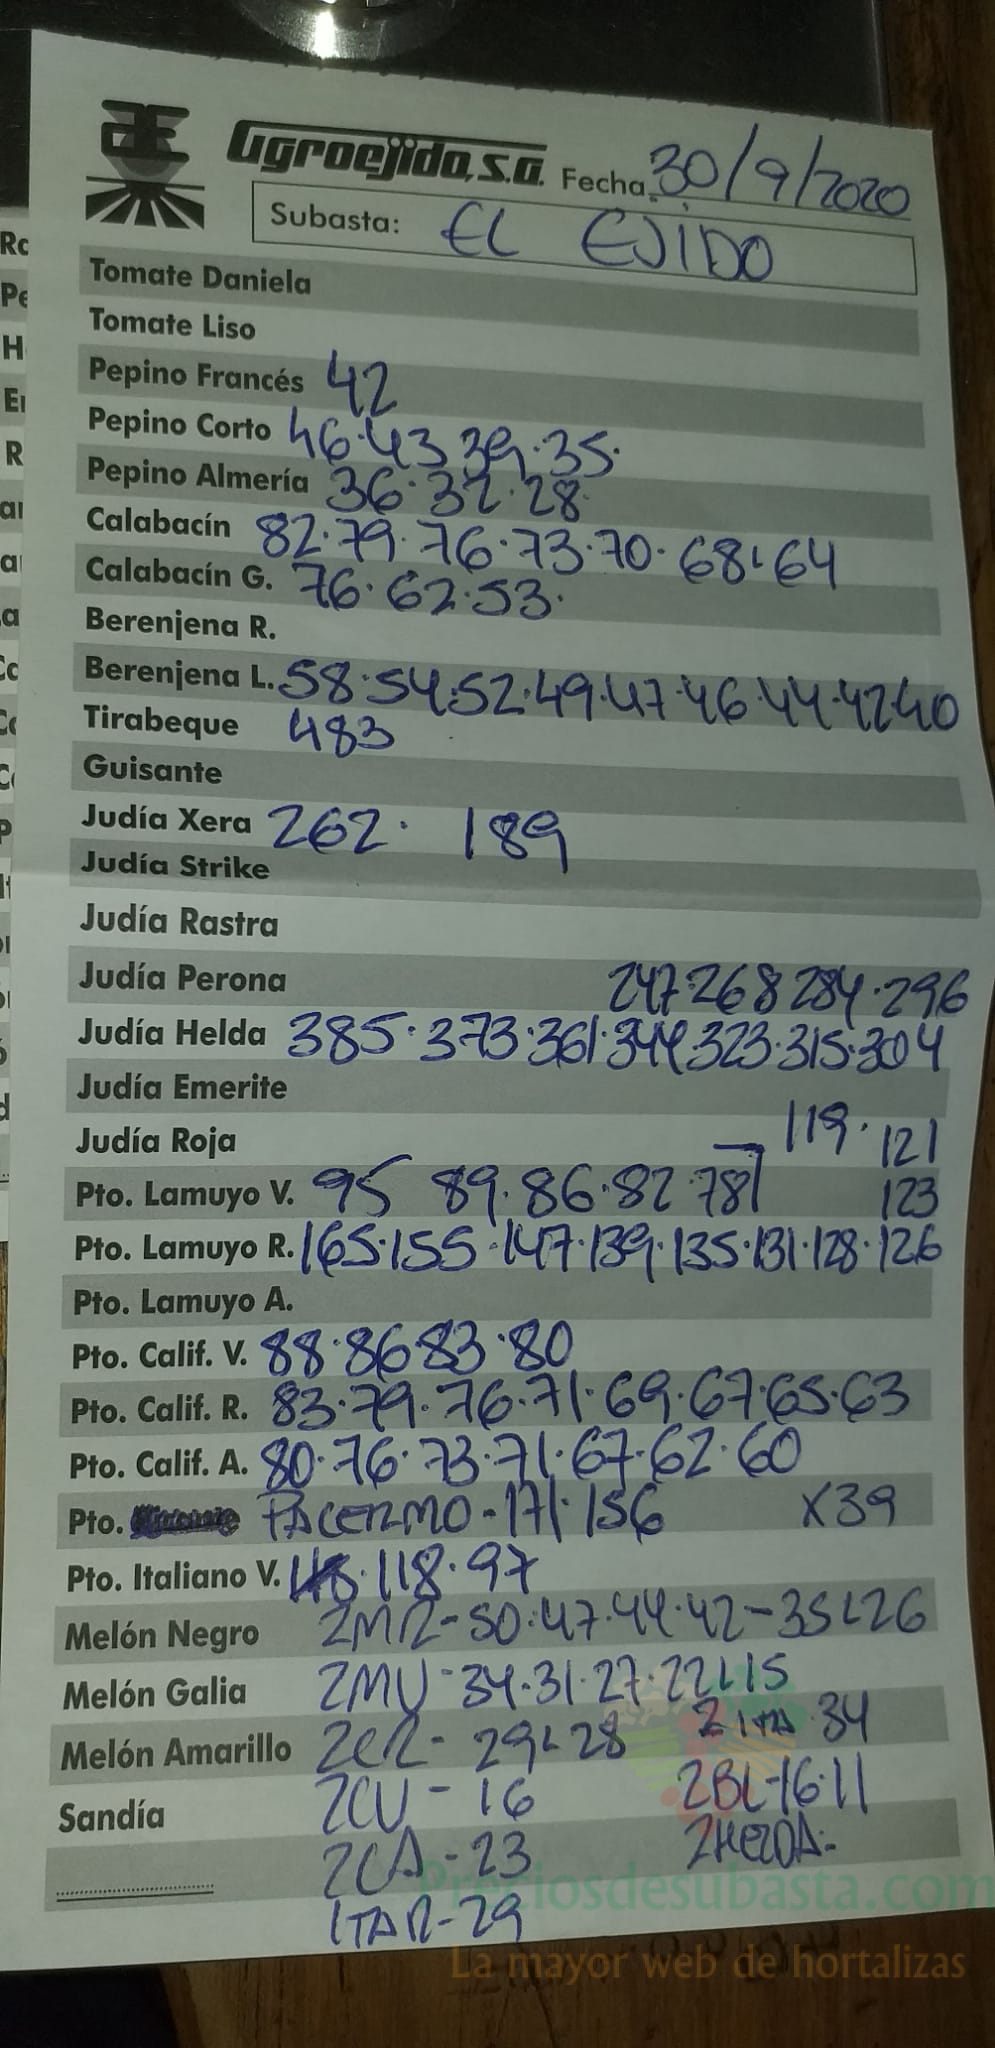 Agroejido, S.A. Fecha 30/9/2020
Subasta: EL EJIDO
Tomate Daniela
Tomate Liso
Pepino Francés 42
Pepino Corto 46·43 39·35·
Pepino Almería 36·32·28·
Calabacín 82·79·76·73·70·68·64
Calabacín G. 76·62·53·
Berenjena R.
Berenjena L. 58·54·52·49·47·46·44·42·40
Tirabeque 483
Guisante
Judía Xera 262· 189
Judía Strike
Judía Rastra
Judía Perona 247·268 284·296
Judía Helda 385·373·361·344·323·315·304
Judía Emerite
Judía Roja 119· 121
Pto. Lamuyo V. 95 89·86·82·78 123
Pto. Lamuyo R. 165·155·147·139·135·131·128·126
Pto. Lamuyo A.
Pto. Calif. V. 88·86·83·80
Pto. Calif. R. 83·79·76·71·69·67·65·63
Pto. Calif. A. 80·76·73·71·67·62·60
Pto. PALERMO-171·156 X39
Pto. Italiano V. 118·97
Melón Negro 2MR-50·47·44·42-35L26
Melón Galia 2MV-34·31·27·22L15
Melón Amarillo 2CR-29L28 2ITA·34
Sandía 2CV-16 2BL-16·11
2CA-23
ITAR-29
Preciosdesubasta.com
La mayor web de hortalizas